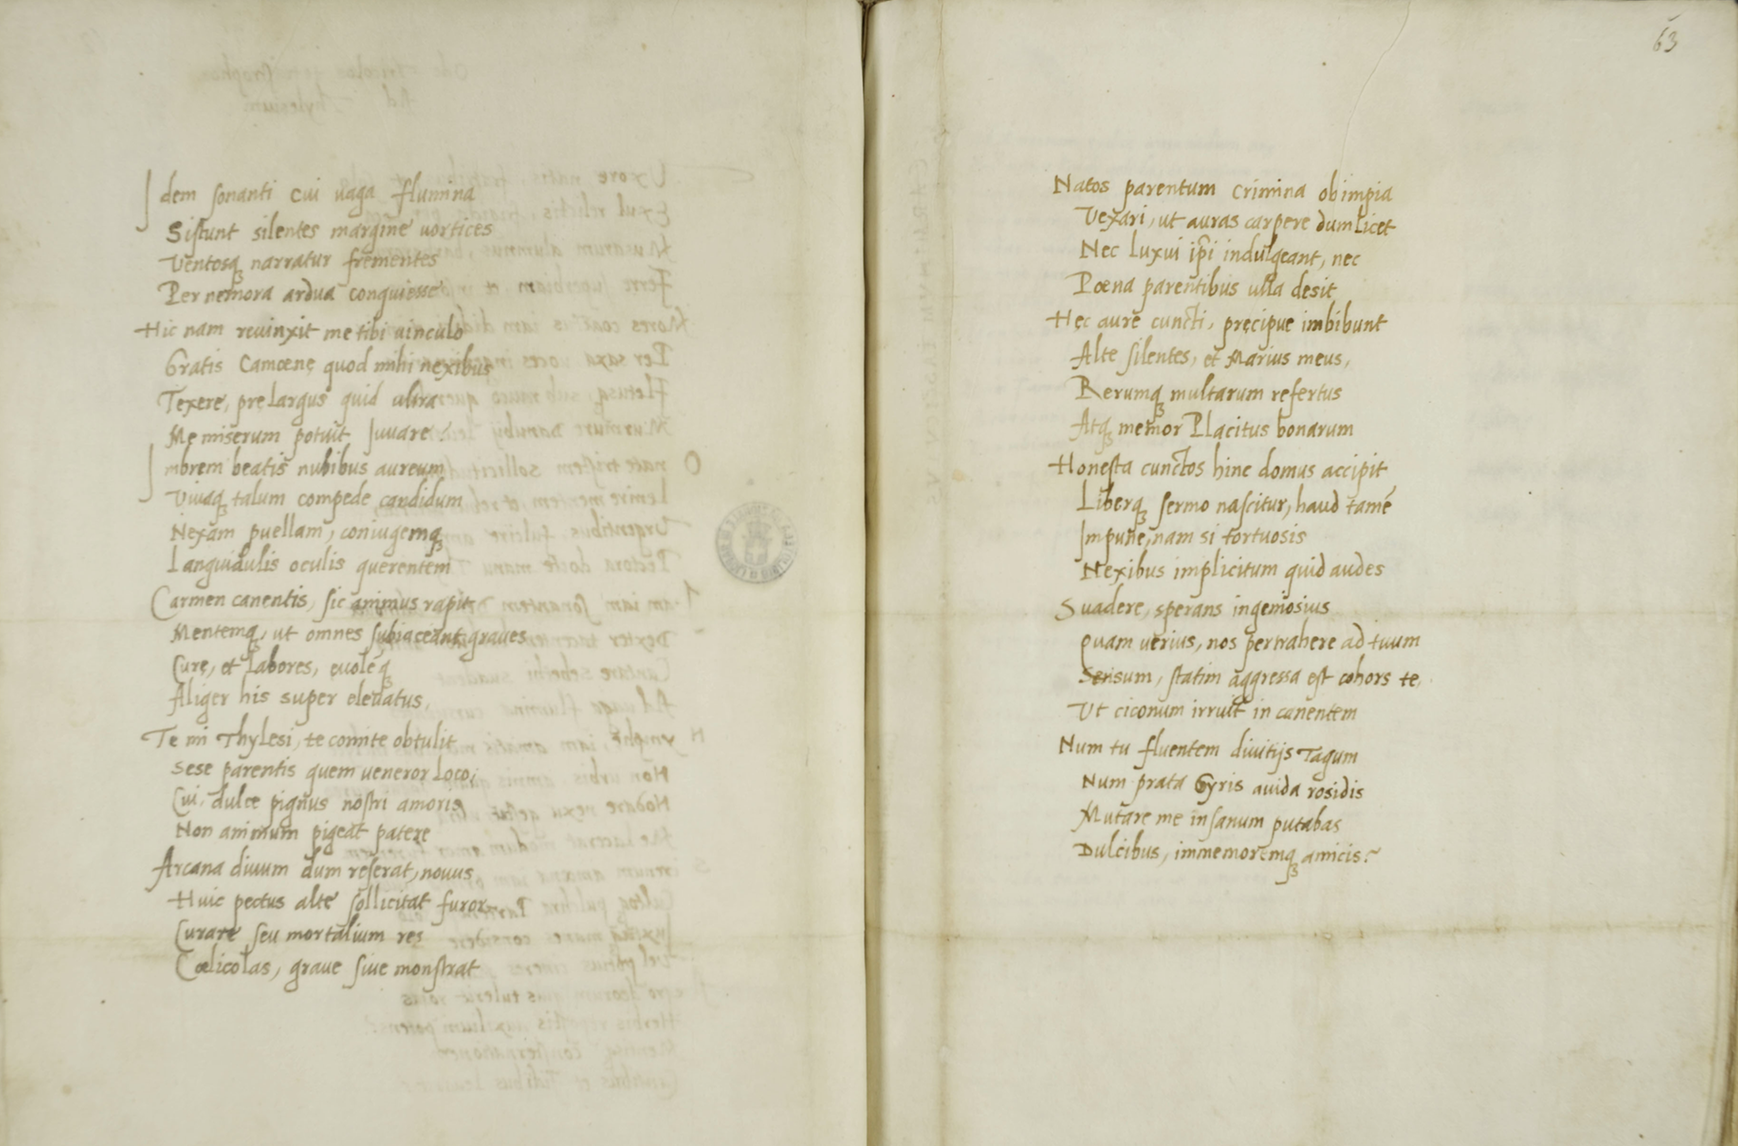 Idem sonanti cui uaga flumina
Sistunt silentes margine uortices
Ventosq; narratur frementes
Per nemora ardua conquiesse
Hic nam reuinxit me tibi uinculo
Gratis Camoenę quod mihi nexibus
Texere, prelargus quid ultra
Me miserum potuit Iuuare?
Imbrem beatis nubibus aureum
Viuaq; talum compede candidum
Nexam puellam, coniugemq;
Languidulis oculis querentem
Carmen canentis, sic animus rapit
Mentemq;, ut omnes subiaceant graues
Curę, et labores, euoleq;
Aliger his super eleuatus.
Te mi Thylesi, te comite obtulit
Sese parentis quem ueneror loco,
Cui, dulce pignus nostri amoris,
Non animum pigeat patere
Arcana diuum dum reserat, nouus
Huic pectus alte sollicitat furor
Curare seu mortalium res
Cœlicolas, graue siue monstrat
63
Natos parentum crimina ob impia
Vexari, ut auras carpere dum licet
Nec luxui ip̃i indulgeant, nec
Pœna parentibus ulla desit
Hęc aure cuncti, pręcipue imbibunt
Alte silentes, et Marius meus,
Rerumq; multarum refertus
Atq; memor Placitus bonarum
Honesta cunctos hinc domus accipit
Liberq; sermo nascitur, haud tamẽ
Impune, nam si tortuosis
Nexibus implicitum quid audes
Suadere, sperans ingeniosius
Quam uerius, nos pertrahere ad tuum
Sensum, statim aggressa est cohors te,
Vt ciconum irruit in canentem
Num tu fluentem diuitijs Tagum
Num prata Gyris auida rosidis
Mutare me insanum putabas
Dulcibus, immemoremq; amicis?